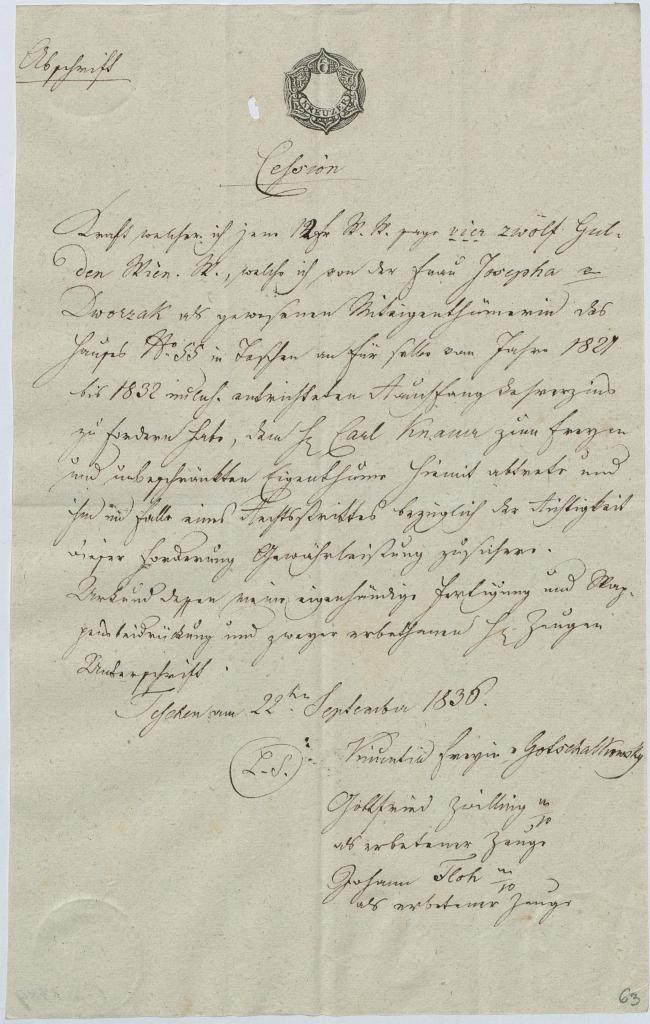 Abschrift
6
KREUZER
Cession
Kraft welcher ich jene 12 fr W. W. sage vier zwölf Gul-
den Wien. W., welche ich von der Frau Josepha v
Dworzak als gewesenen Miteigenthümerin des
Hauses No 55 in Teschen an für selbe vom Jahre 1821
bis 1832 inclus. entrichteten Rauchfangkehrerzins
zu fordern habe, dem H. Carl Knauer zum freyen
und unbeschränkten Eigenthume hiemit abtrete und
ihm im Falle eines Rechtsstrittes bezüglich der Richtigkeit
dieser Forderung Gewährleistung zusichere.
Urkund dessen meine eigenhändige Fertigung und Wap-
pensbeidrückung und zweyer erbethenen H. Zeugen
Unterschrift.
Teschen am 22ten September 1836.
L.S. Vincentia Freyin v Gotschalkowsky
Gottfried Zwilling
als erbetener Zeuge
Johann Floh
als erbetener Zeuge
63